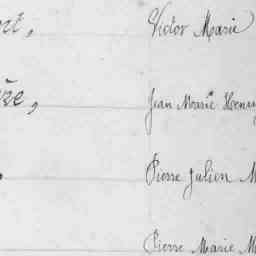 Victor Marie
Jean Marie Henry
Pierre Julien M
Pierre Marie M